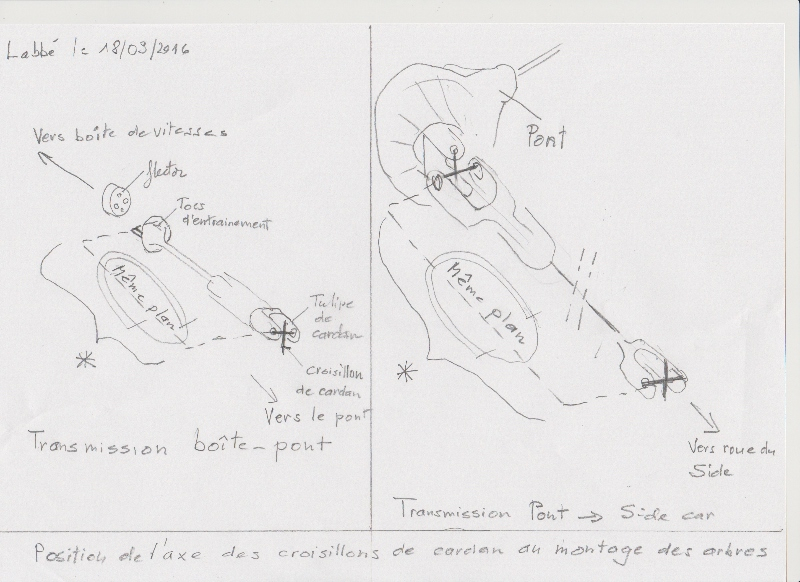 Labbé le 18/03/2016
Vers boîte de vitesses
flector
Tocs
d'entrainement
Même plan
Tulipe
de
cardan
croisillon
de cardan
Vers le pont
Transmission boîte-pont
Pont
Même plan
Vers roue du
Side
Transmission Pont → Side car
Position de l'axe des croisillons de cardan au montage des arbres